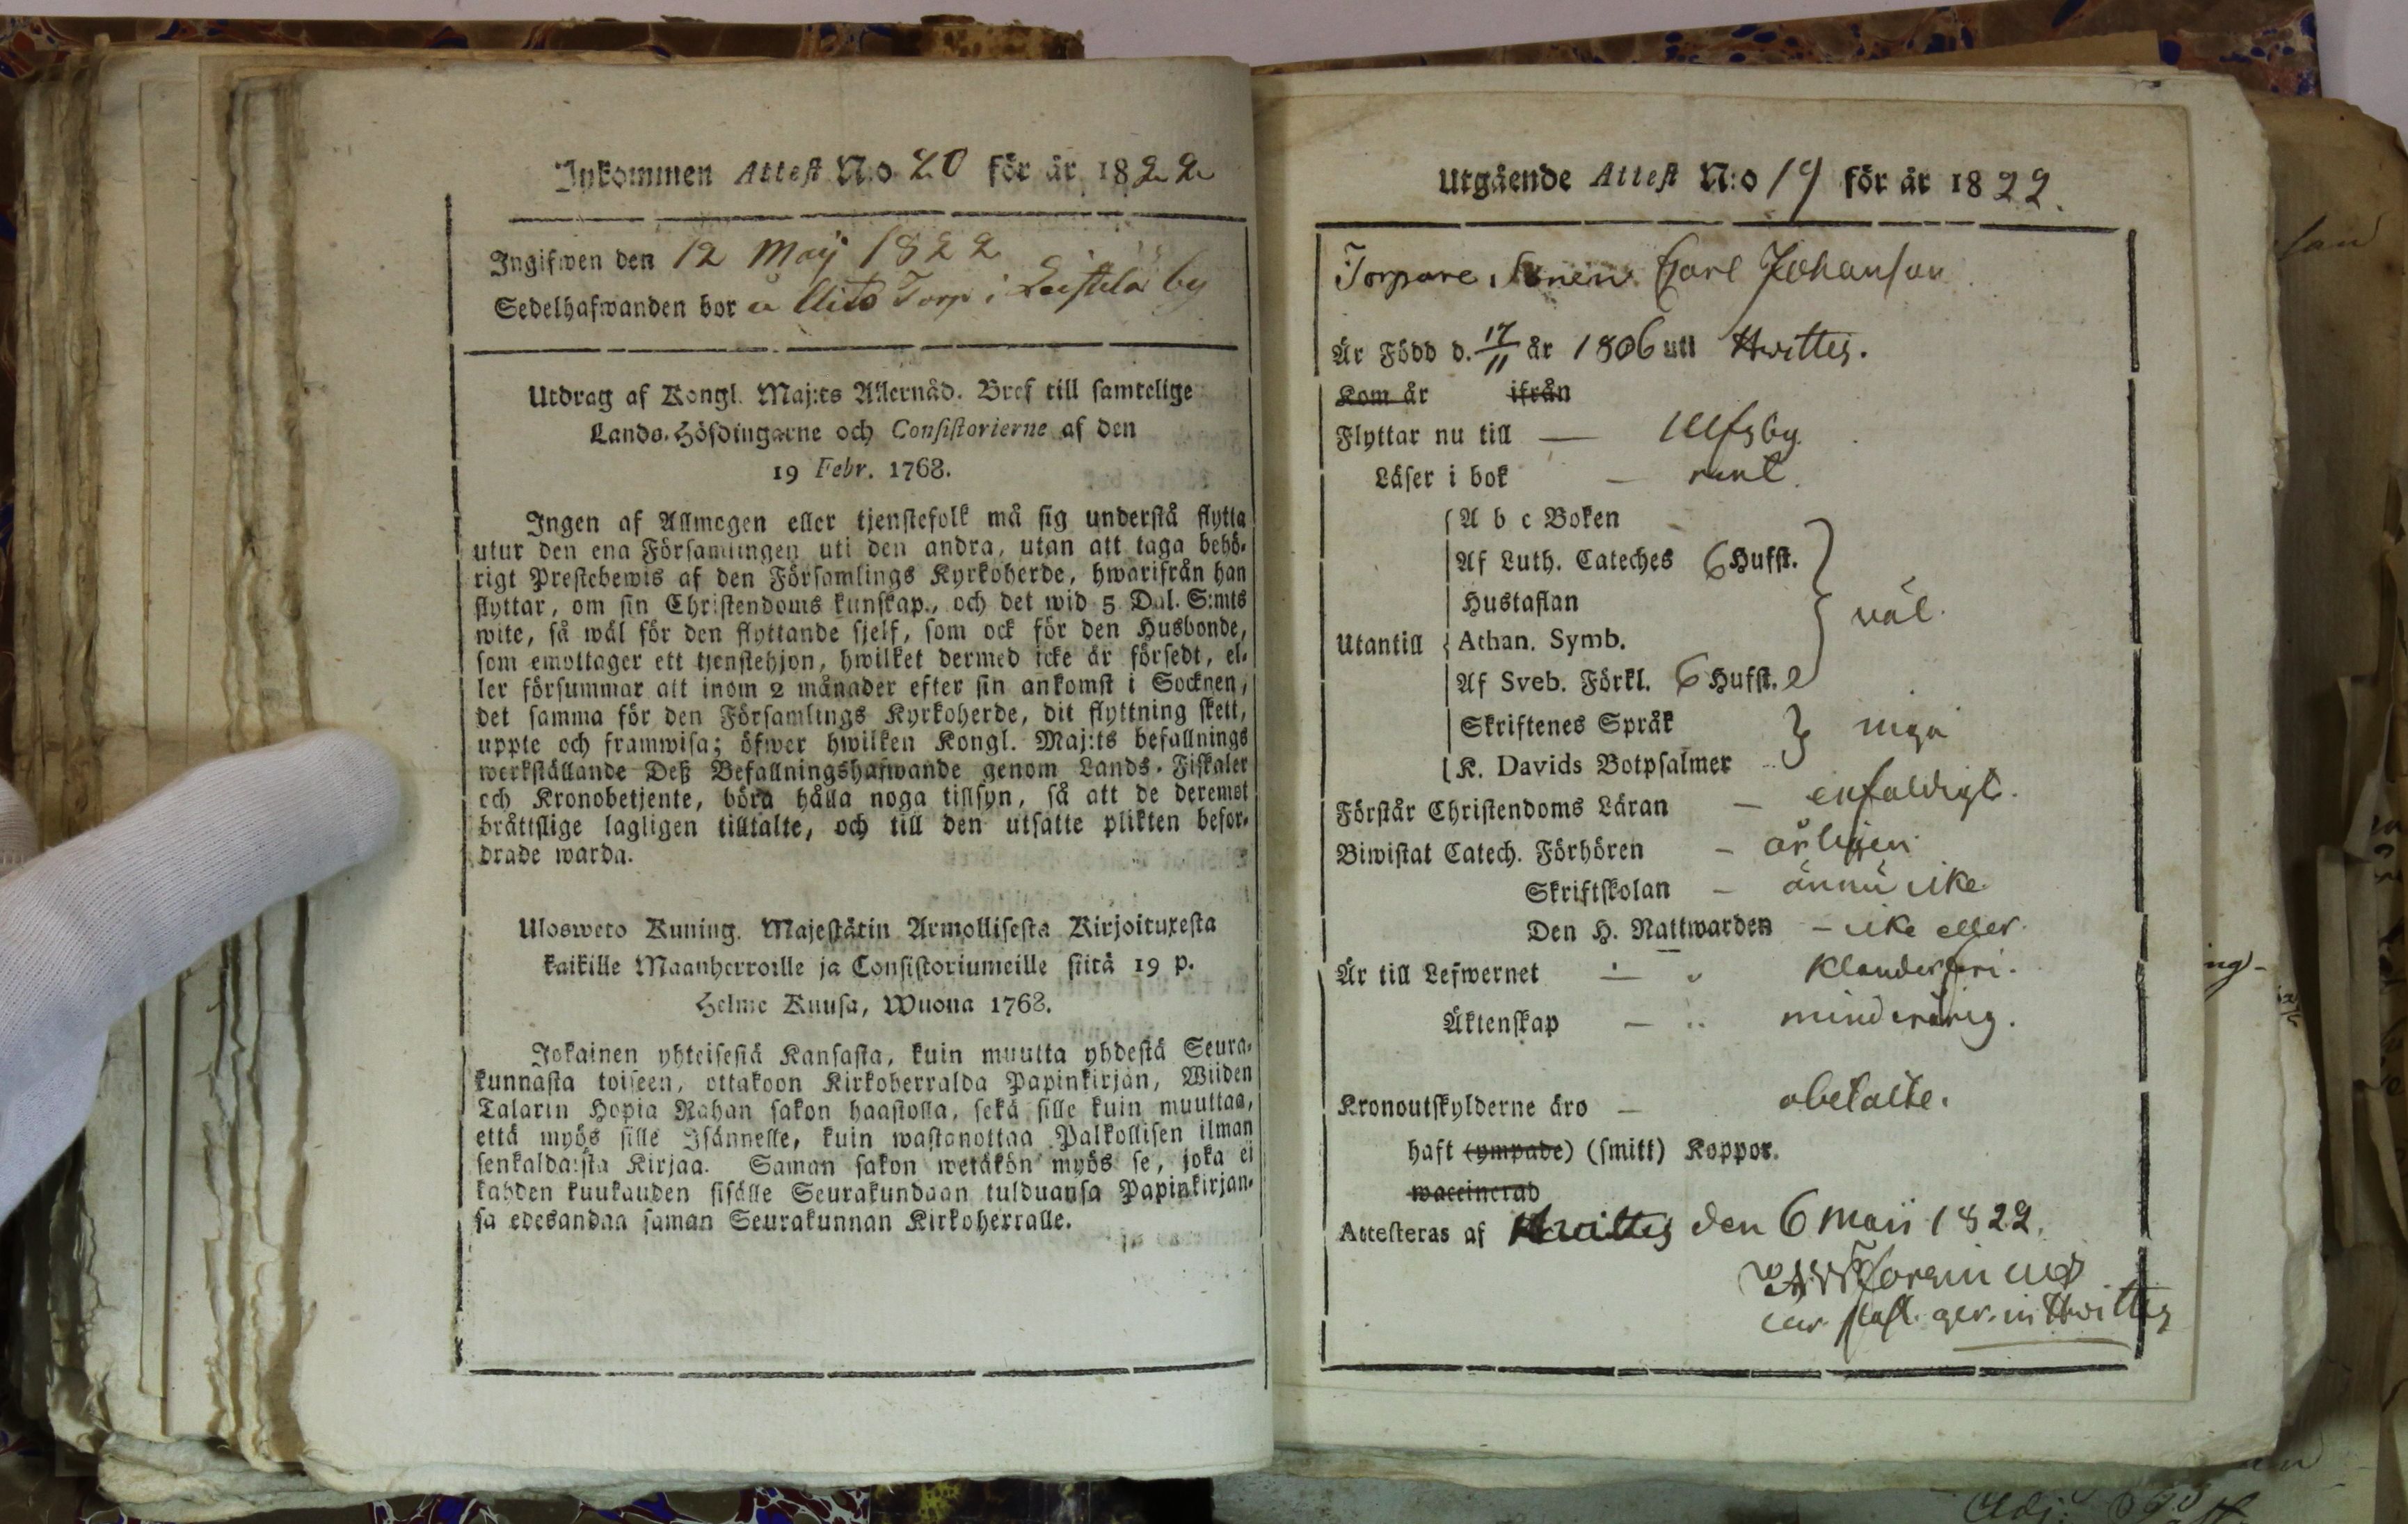 Inkommen Attest N:o 20 för år 1822
Ingifwen den 12 Maij 1822
Sedelhafwanden bor å Torp i Leistila by
Utdrag af Kongl. Maj:ts Allernåd. Bref till samtelige
Lands-Höfdingarne och Consistorierne af den
19 Febr. 1768.
Ingen af Allmogen eller tjenstefolk må sig understå flytta
utur den ena Församlingen uti den andra, utan att taga behö-
rigt Prestebewis af den Församlings Kyrkoherde, hwarifrån han
flyttar, om sin Christendoms kunskap, och det wid 5 Dal. S:mts
wite, så wäl för den flyttande sjelf, som ock för den Husbonde,
som emottager ett tjenstehjon, hwilket dermed icke är försedt, el-
ler försummar att inom 2 månader efter sin ankomst i Socknen,
det samma för den Församlings Kyrkoherde, dit flyttning skett,
uppte och framwisa; öfwer hwilken Kongl. Maj:ts befallnings
werkställande Deß Befallningshafwande genom Lands-Fiskaler
och Kronobetjente, böra hålla noga tillsyn, så att de deremot
bråttslige lagligen tilltalte, och till den utsatte plikten befor-
drade warda.
Ulosweto Kuning. Majestätin Armollisesta Kirjoituxesta
kaikille Maanherroille ja Consistoriumeille siitä 19 p.
Helme Kuusa, Wuona 1768.
Jokainen yhteisestä Kansasta, kuin muutta yhdestä Seura-
kunnasta toiseen, ottakoon Kirkoherralda Papinkirjan, Wiiden
Talarin Hopia Rahan sakon haastolla, sekä sille kuin muuttaa,
että myös sille Isännelle, kuin wastanottaa Palkollisen ilman
senkaldaista Kirjaa. Saman sakon wetäkön myös se, joka ei
kahden kuukauden sisälle Seurakundaan tulduansa Papinkirjan-
sa edesandaa saman Seurakunnan Kirkoherralle.
Utgående Attest N:o 19 för år 1822.
Torpare Sonen Carl Johansson
Är Född d. 17/11 år 1806 uti Hwittis.
Kom år ifrån
Flyttar nu till — Ulfsby
Läser i bok — rent.
A b c Boken
Af Luth. Cateches 6 Hufst.
Hustaflan
väl.
Utantill Athan. Symb.
Af Sveb. Förkl. 6 Hufst.
Skriftenes Språk
inga
K. Davids Botpsalmer
Förstår Christendoms Läran — enfaldigt.
Biwistat Catech. Förhören — årligen
Skriftskolan — ännu icke
Den H. Nattwarden — icke eller.
Är till Lefwernet — klanderfri.
Äktenskap — minderårig.
Kronoutskylderne äro — obetalte.
haft (ympade) (smitt) Koppor.
waccinerad
Attesteras af Hwittis den 6 Maii 1822.
in Hwittis